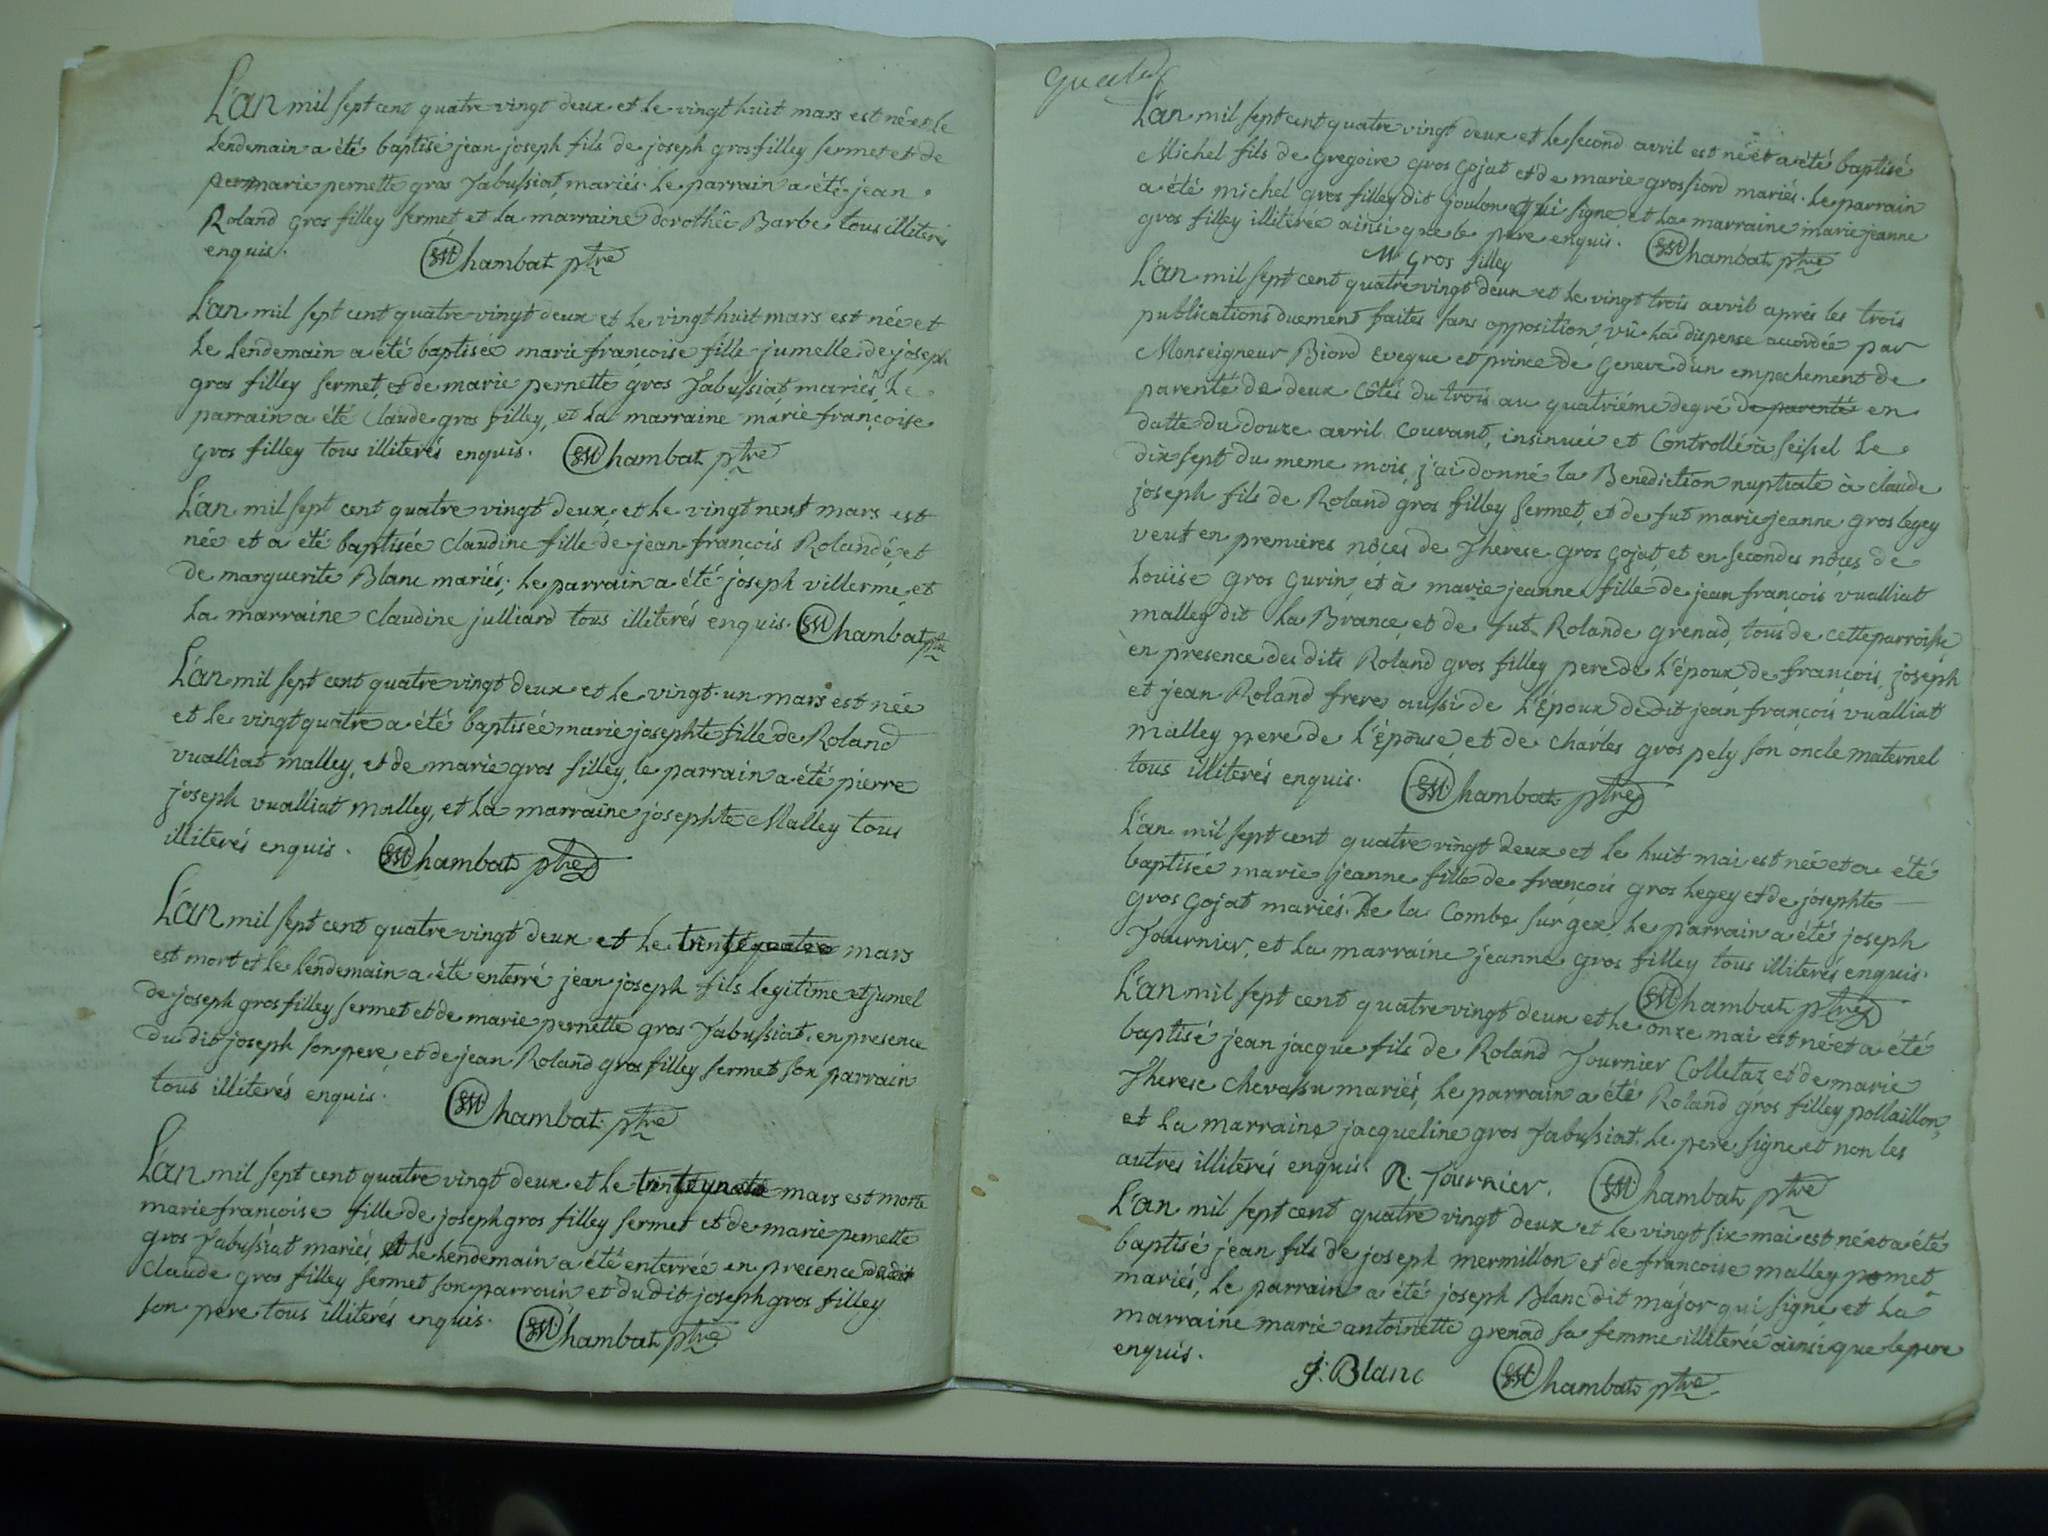 L'an mil sept cent quatre vingt deux et le vingt huit mars est né et le
lendemain a été baptisé jean joseph fils de joseph gros filley fermet et de
marie pernette gros Jabussiat mariés. le parrain a été jean
Roland gros filley fermet, et la marraine dorothée Barbe tous illiterés
enquis. Chambat ptre
L'an mil sept cent quatre vingt deux et le vingt huit mars est née et
le lendemain a été baptisée marie françoise fille jumelle de joseph
gros filley fermet, et de marie pernette gros Jabussiat, mariés, le
parrain a été Claude gros filley, et la marraine marie françoise
gros filley tous illiterés enquis. Chambat ptre
L'an mil sept cent quatre vingt deux, et le vingt neuf mars est
née et a été baptisée Claudine fille de jean francois Rolandé, et
de marguerite Blanc mariés; le parrain a été joseph villerme, et
la marraine Claudine julliard tous illiterés enquis. Chambat ptre
L'an mil sept cent quatre vingt deux et le vingt un mars est née
et le vingt quatre a été baptisée marie josephte fille de Roland
vualliat malley, et de marie gros filley, le parrain a été pierre
joseph vualliat malley, et la marraine josephte Malley tous
illiterés enquis. Chambat ptre
L'an mil sept cent quatre vingt deux et le mars
est mort et le lendemain a été enterré jean joseph fils legitime et jumel
de joseph gros filley fermet et de marie pernette gros Jabussiat, en presence
du dit joseph son pere, et de jean Roland gros filley fermet son parrain
tous illiterés enquis. Chambat ptre
L'an mil sept cent quatre vingt deux et le mars est morte
marie francoise fille de joseph gros filley fermet et de marie pernette
gros Jabussiat mariés, et le lendemain a été enterrée en presence
Claude gros filley fermet son parrain et du dit joseph gros filley
son père tous illiterés enquis. Chambat ptre
L'an mil sept cent quatre vingt deux et le second avril est né et a été baptisé
Michel fils de gregoire gros gojat et de marie grossiord mariés. le parrain
a été michel gros filley dit goulon qui signe, et la marraine marie jeanne
gros filley illiterée ainsi que le pere enquis. Chambat ptre
M gros filley
L'an mil sept cent quatre vingt deux et le vingt trois avril aprés les trois
publications duement faites sans opposition, vû la dispense accordée par
Monseigneur Biord Eveque et prince de Geneve d'un empechement de
parenté de deux côtés du trois au quatriéme degré de parenté en
datte du douze avril courant, insinuée et controllé à seissel le
dix sept du meme mois, j'ai donné la Benediction nuptiale à claude
joseph fils de Roland gros filley fermet, et de fut marie jeanne gros legey
veuf en premieres nôces de Therese gros gojat, et en secondes nôces de
Louise gros gurin, et à marie jeanne fille de jean françois vualliat
malley dit la Brance, et de fut Rolande grenad, tous de cette parroisse,
en presence des dits Roland gros filley pere de l'époux, de francois, joseph
et jean Roland freres aussi de l'époux dedit jean françois vualliat
malley pere de l'épouse, et de charles gros pely son oncle maternel
tous illiterés enquis. Chambat ptre
L'an mil sept cent quatre vingt deux et le huit mai est née et a été
baptisée marie jeanne fille de françois gros legey et de josephte
gros gojat mariés. De la Combe sur gex, le parrain a été joseph
Tournier, et la marraine jeanne gros filley tous illiterés enquis.
Chambat ptre
L'an mil sept cent quatre vingt deux et le onze mai est né et a été
baptisé jean jacque fils de Roland Tournier Colletaz et de marie
Therese chevassu mariés, le parrain a été Roland gros filley pollaillon,
et la marraine jacqueline gros Jabussiat, le pere signe et non les
autres illiterés enquis. R. Tournier. Chambat ptre
L'an mil sept cent quatre vingt deux et le vingt six mai est né et a été
baptisé jean fils de joseph mermillon et de francoise malley pomet
mariés, le parrain a été joseph Blanc dit major qui signe, et la
marraine marie antoinette grenad sa femme illiterée ainsi que le pere
enquis. j. Blanc Chambat ptre